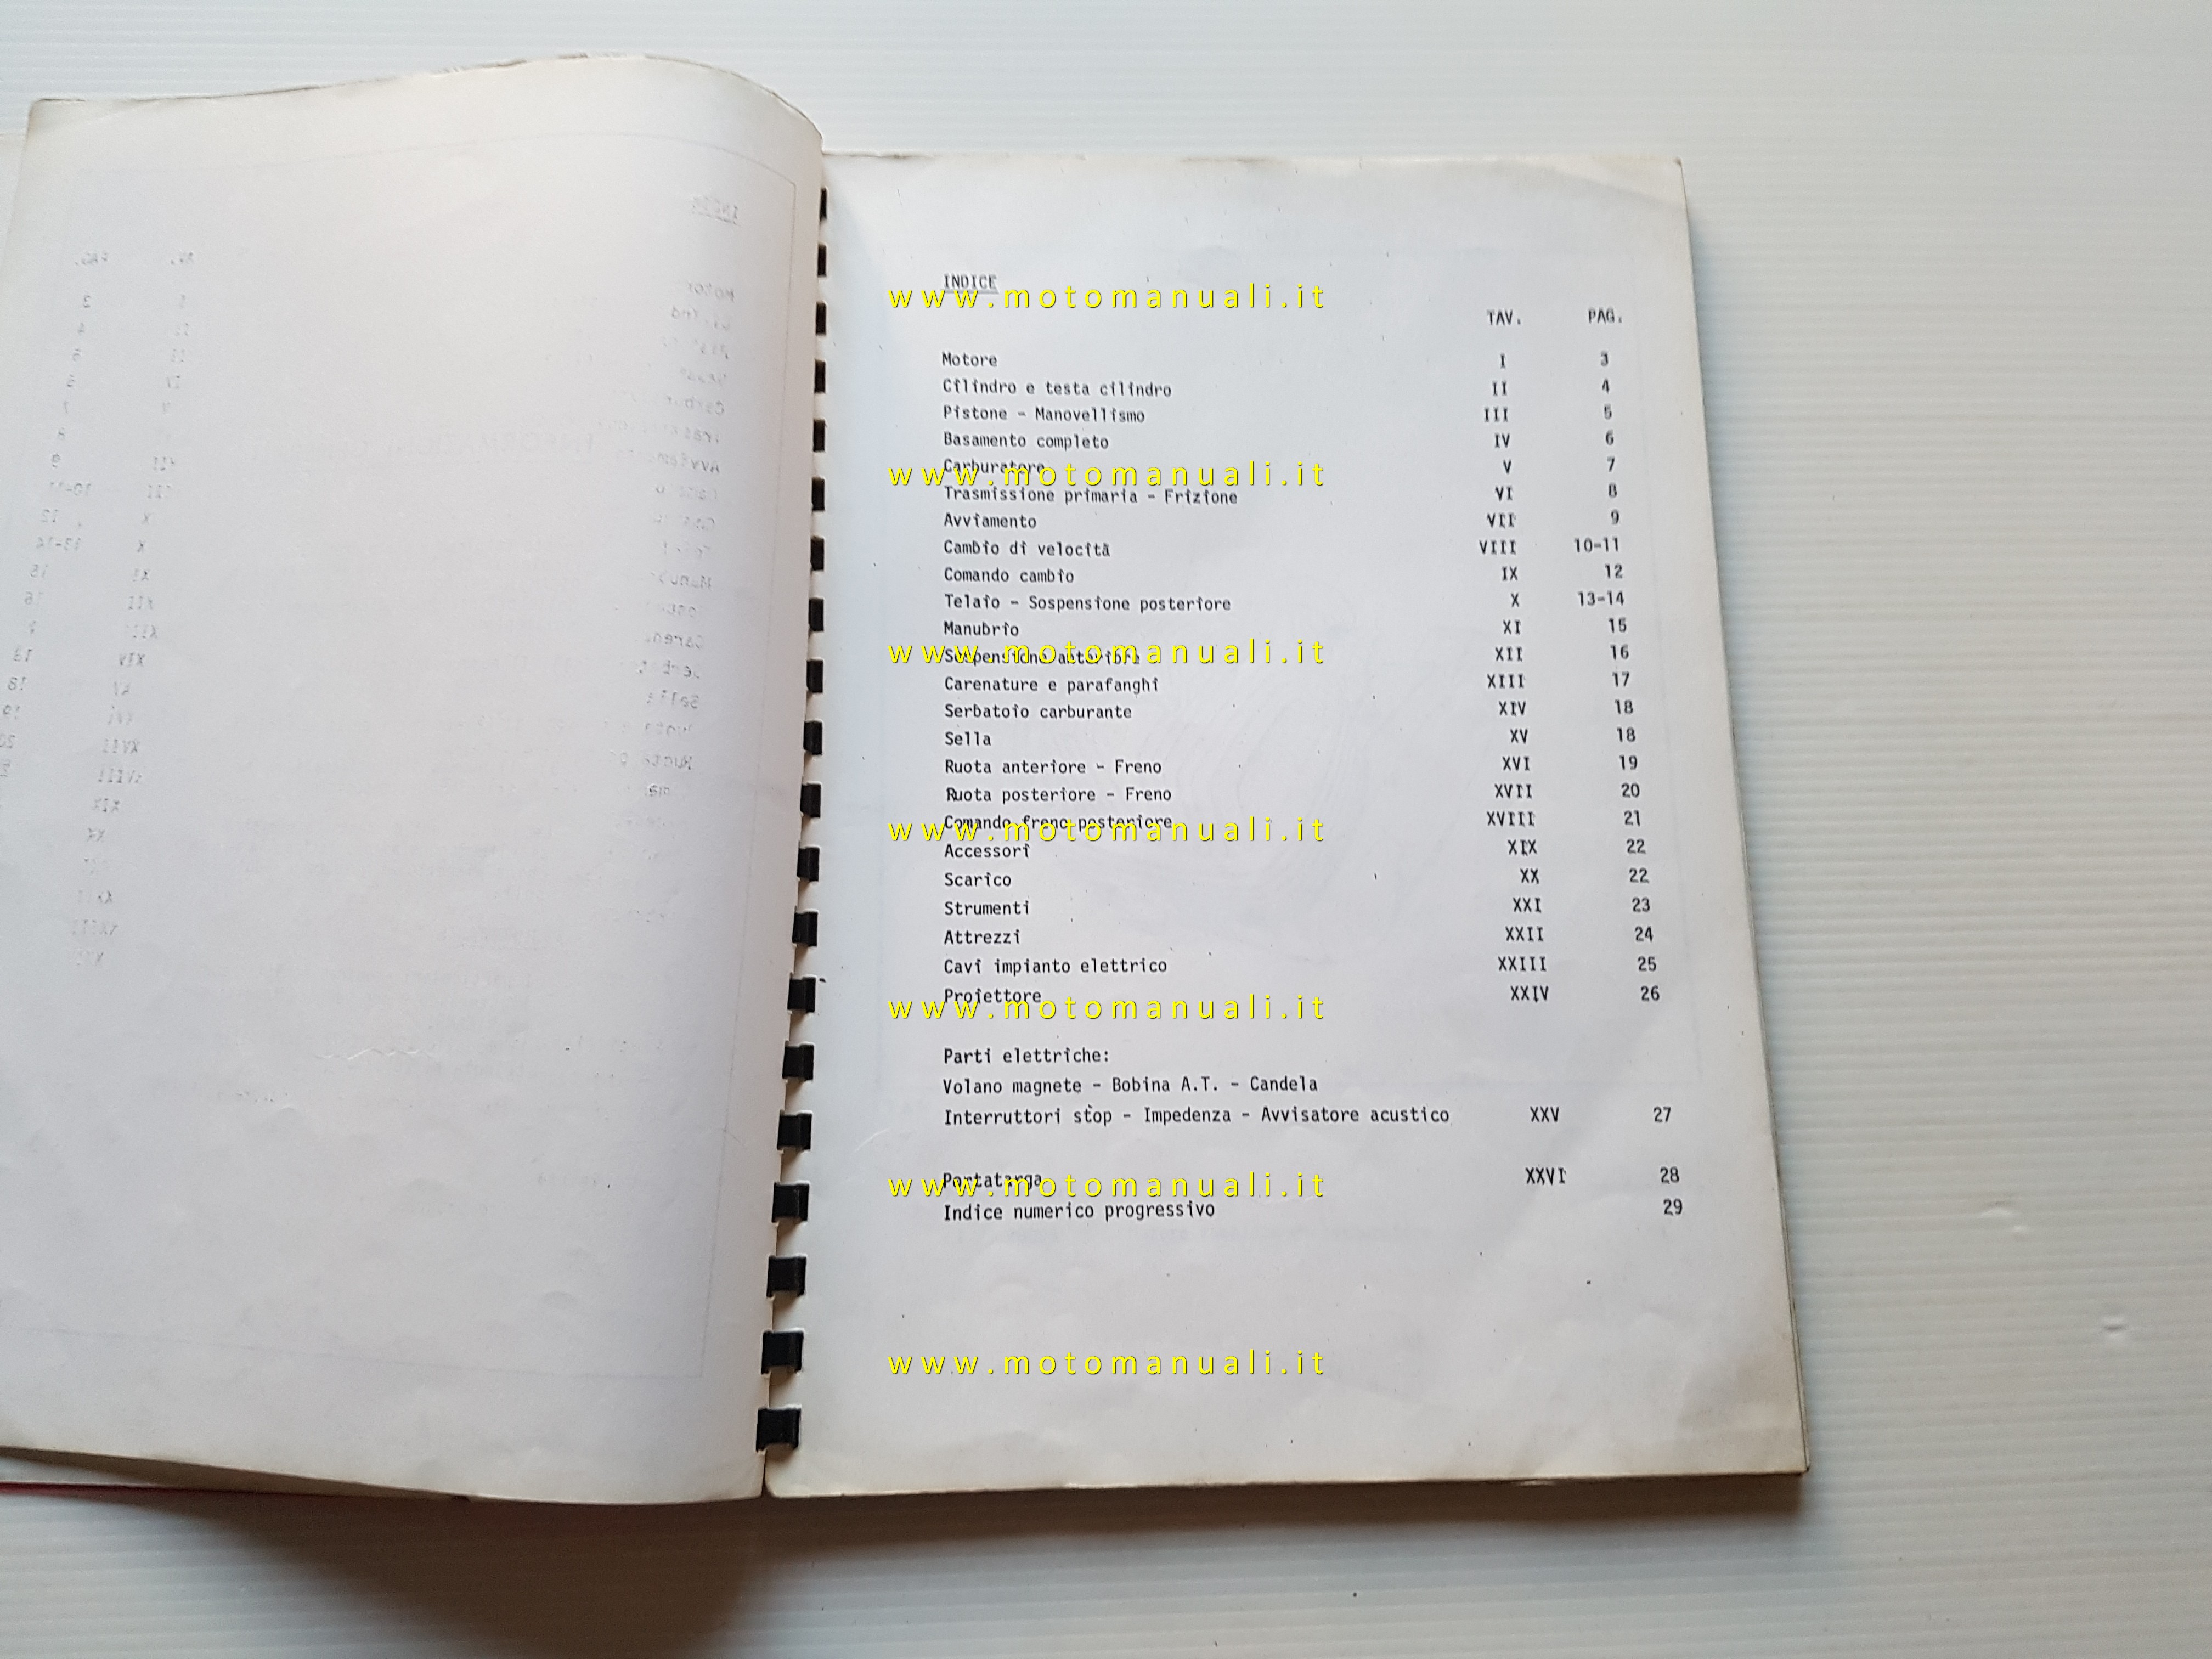 INDICE
www.motomanuali.it
TAV. PAG.
Motore I 3
Cilindro e testa cilindro II 4
Pistone - Manovellismo III 5
Basamento completo IV 6
Carburatore V 7
www.motomanuali.it
Trasmissione primaria - Frizione VI 8
Avviamento VII 9
Cambio di velocità VIII 10-11
Comando cambio IX 12
Telaio - Sospensione posteriore X 13-14
Manubrio XI 15
Sospensione anteriore XII 16
www.motomanuali.it
Carenature e parafanghi XIII 17
Serbatoio carburante XIV 18
Sella XV 18
Ruota anteriore - Freno XVI 19
Ruota posteriore - Freno XVII 20
Comando freno posteriore XVIII 21
www.motomanuali.it
Accessori XIX 22
Scarico XX 22
Strumenti XXI 23
Attrezzi XXII 24
Cavi impianto elettrico XXIII 25
Projettore XXIV 26
www.motomanuali.it
Parti elettriche:
Volano magnete - Bobina A.T. - Candela
Interruttori stop - Impedenza - Avvisatore acustico XXV 27
Portatarga XXVI 28
www.motomanuali.it
Indice numerico progressivo 29
www.motomanuali.it